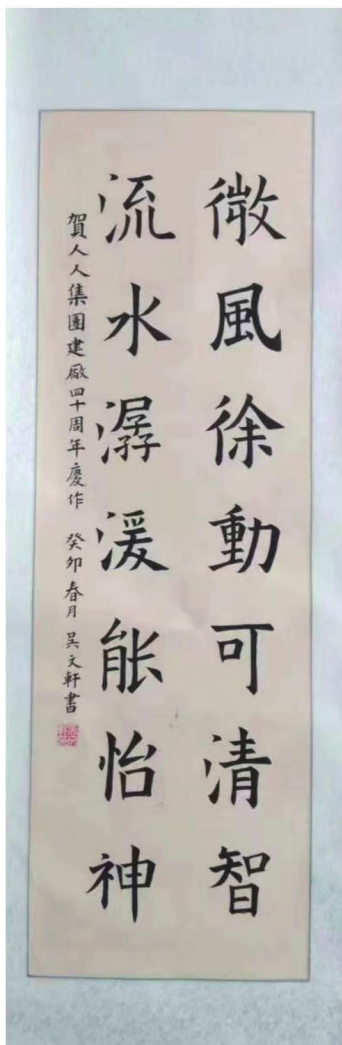 微風徐動可清智
流水潺湲能怡神
賀人人集團建廠四十周年慶作 癸卯春月 吴文軒書